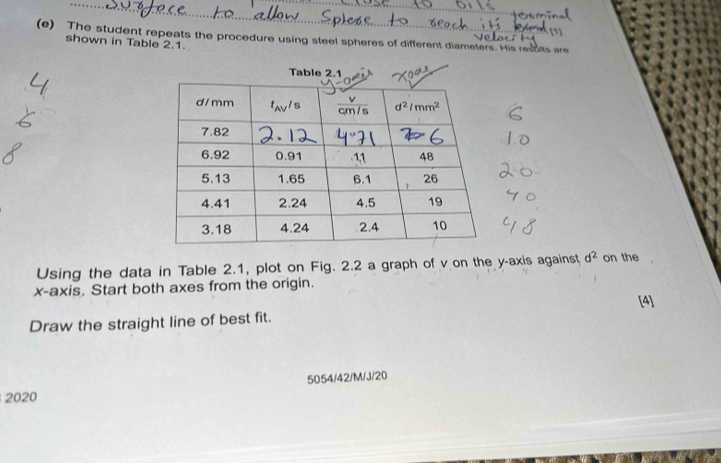 surface to allow Sphere to reach its terminal
velocity [1]
(e) The student repeats the procedure using steel spheres of different diameters. His results are
shown in Table 2.1.
Table 2.1
y-axis x-axis
d/mm tAV/s v cm/s d²/mm²
7.82 2.12 4.71 6
6.92 0.91 11 48
5.13 1.65 6.1 26
4.41 2.24 4.5 19
3.18 4.24 2.4 10
4
6
8
6
10
20
40
48
Using the data in Table 2.1, plot on Fig. 2.2 a graph of v on the y-axis against d² on the
x-axis. Start both axes from the origin.
[4]
Draw the straight line of best fit.
5054/42/M/J/20
2020